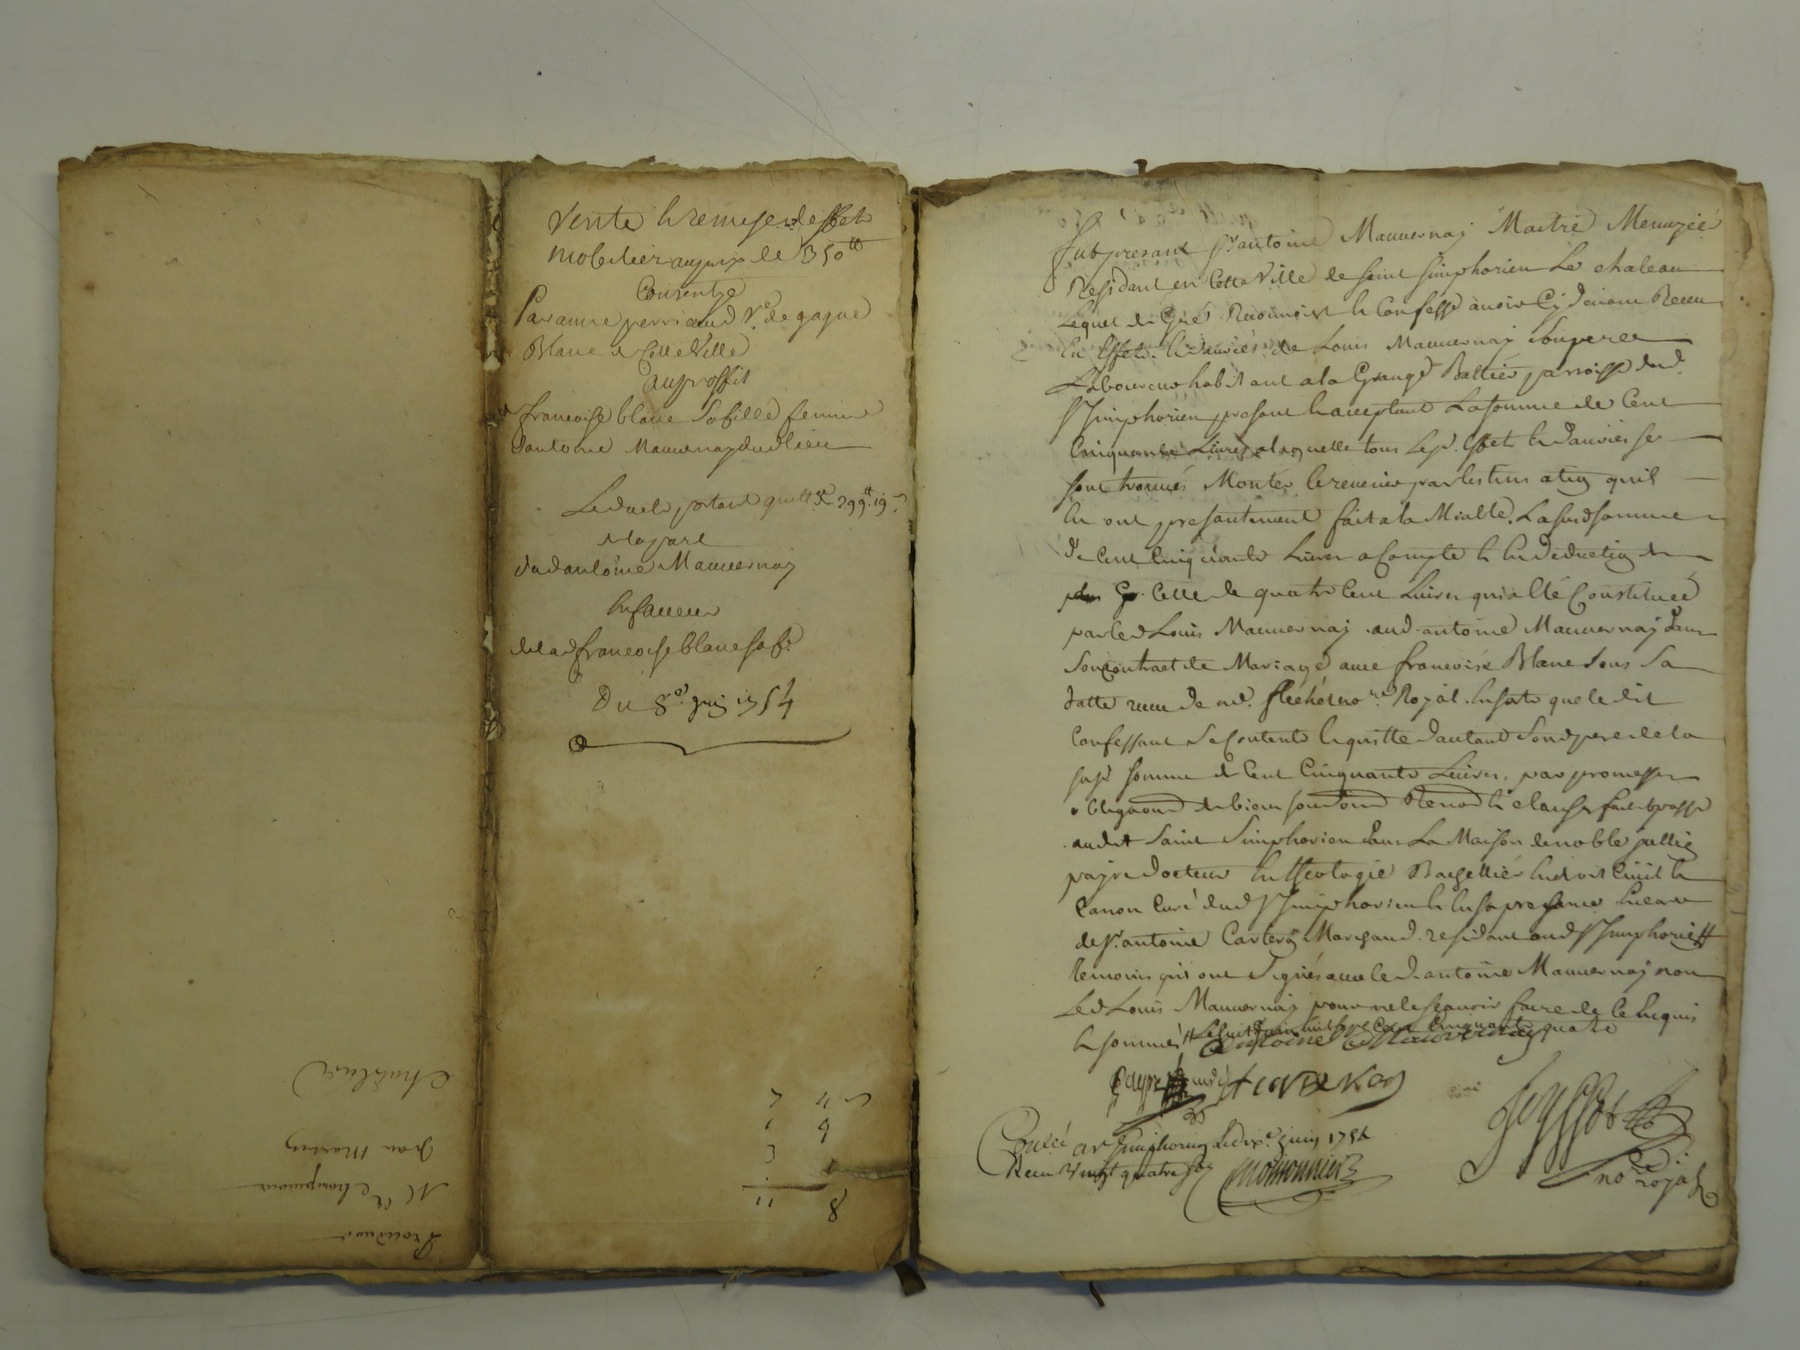 Vente & remise d'effets
mobilier au prix de 350 tt
Consentye
Par anne perricaud Ve. de gaque
Blanc de Cette Ville
au proffit
de francoise blanc Sa fille femme
d'antoine Mauvernay dud lieu
Led acte portant quitt ce 299 tt. 19 s
de la part
dud antoine Mauvernay
En faveur
de lad francoise blanc sa fe.
Du 8e. juin 1754
Chatelard
Jean Martin
11
8
Fut presant Sr. antoine Mauvernay Maitre Menuzié
Residant en Cette Ville de saint Simphorien Le chateau
Lequel de Gré Reconnoist & Confesse avoir Cy devant Receu
En Effets & danrées de Louis Mauvernay Son pere
Laboureur habitant a la Grange Battier parroisse dud.
St Simphorien presant & acceptant La somme de Cent
Cinquante Livres a laquelle tous Lesd. Effets & danrées se
sont trouvés Monter & revenir par l'estimation quil
En ont presantement fait a la Miable. La susd somme
de Cent Cinquante Livres a Compte & En deduction de
Celle de quatre Cent Livres qui a Eté Constituée
par led Louis Mauvernay aud antoine Mauvernay dans
Son Contract de Mariage avec francoise Blanc Sous Sa
datte receu de me. flechet no.re Royal. En sorte que le dit
Confessant Se Contente & quitte d'autant Sond pere de la
susd somme de Cent Cinquante Livres. par promesses
obligaons de biens soumons Renons & clauses fait & passé
audit Saint Simphorien dans La Maison de noble
payre docteur En theologie Bachellier En droit Civil &
Canon Curé dud St Simphorien & En sa presance & Encore
de Sr. antoine Carteron Marchand residant aud St Simphorien #
temoins qui ont Signés avec led. antoine Mauvernay non
Led Louis Mauvernay pour ne le Scavoir faire de ce Enquis
& sommé # Le huit juin mil sept Cent Cinquante quatre
antoine Mauvernay
payre curé A CARTERON
Jeyssot
no royal
Conlé a St Simphorien Le dixe. juin 1754
Receu Vingt quatre sols
Monmonnier